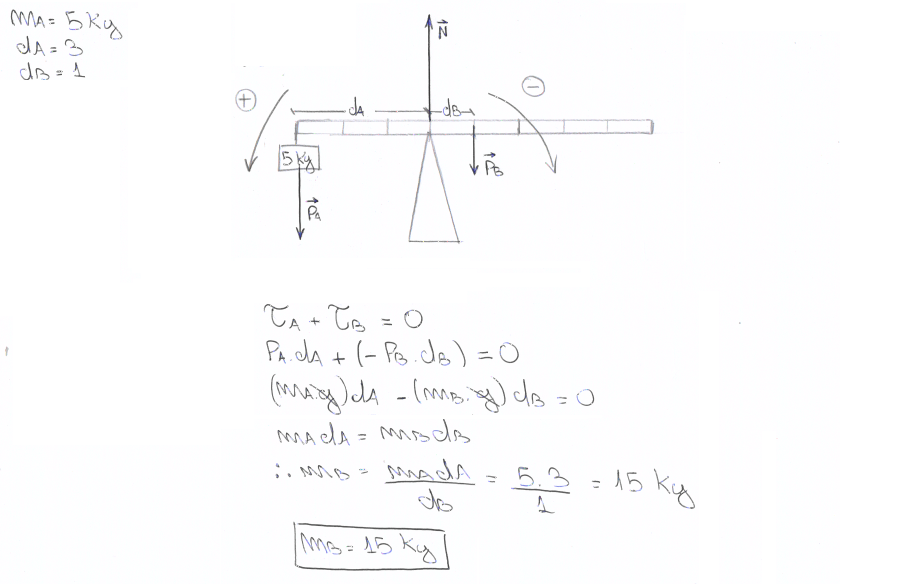 mA = 5 Kg
dA = 3
dB = 1
N⃗
+
−
dA
dB
5 Kg
P⃗B
P⃗A
τA + τB = 0
PA.dA + (- PB.dB) = 0
(mA.g)dA - (mB.g) dB = 0
mA dA = mB dB
∴ mB = mA dA / dB = 5.3 / 1 = 15 Kg
mB = 15 Kg